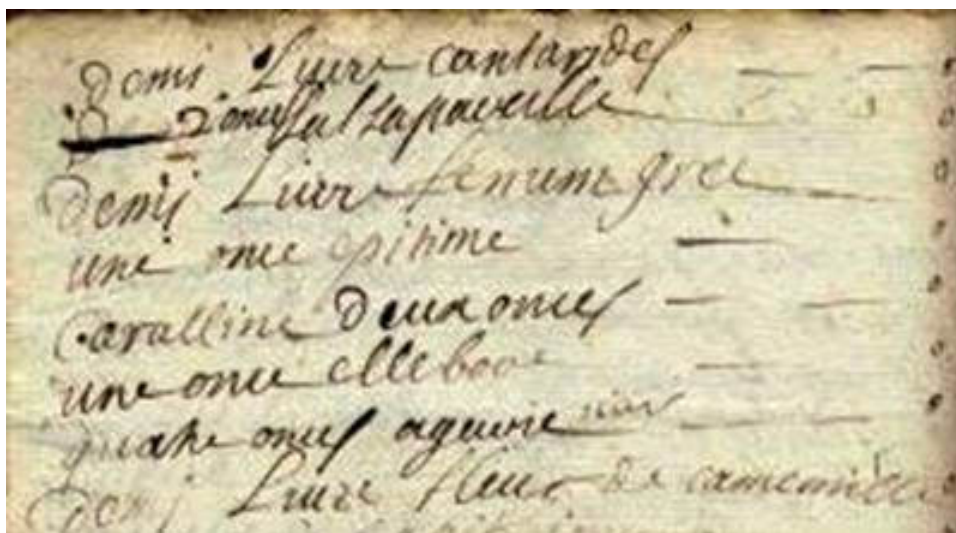 Demi Livre cantarides
2 onces salsapareille
Demi Livre fenum grec
une once epitime
Coralline Deux onces
une once ellebore
quatre onces
Demi Livre fleur de camomille